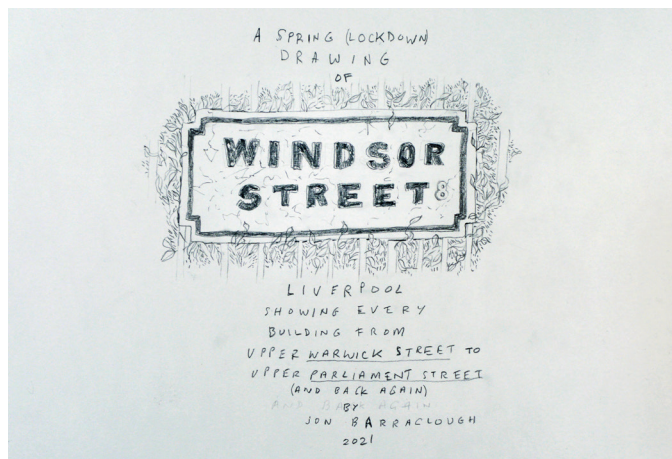 A SPRING (LOCKDOWN)
DRAWING
OF
WINDSOR
STREET 8
LIVERPOOL
SHOWING EVERY
BUILDING FROM
UPPER WARWICK STREET TO
UPPER PARLIAMENT STREET
(AND BACK AGAIN)
AND BACK AGAIN
BY
JON BARRACLOUGH
2021